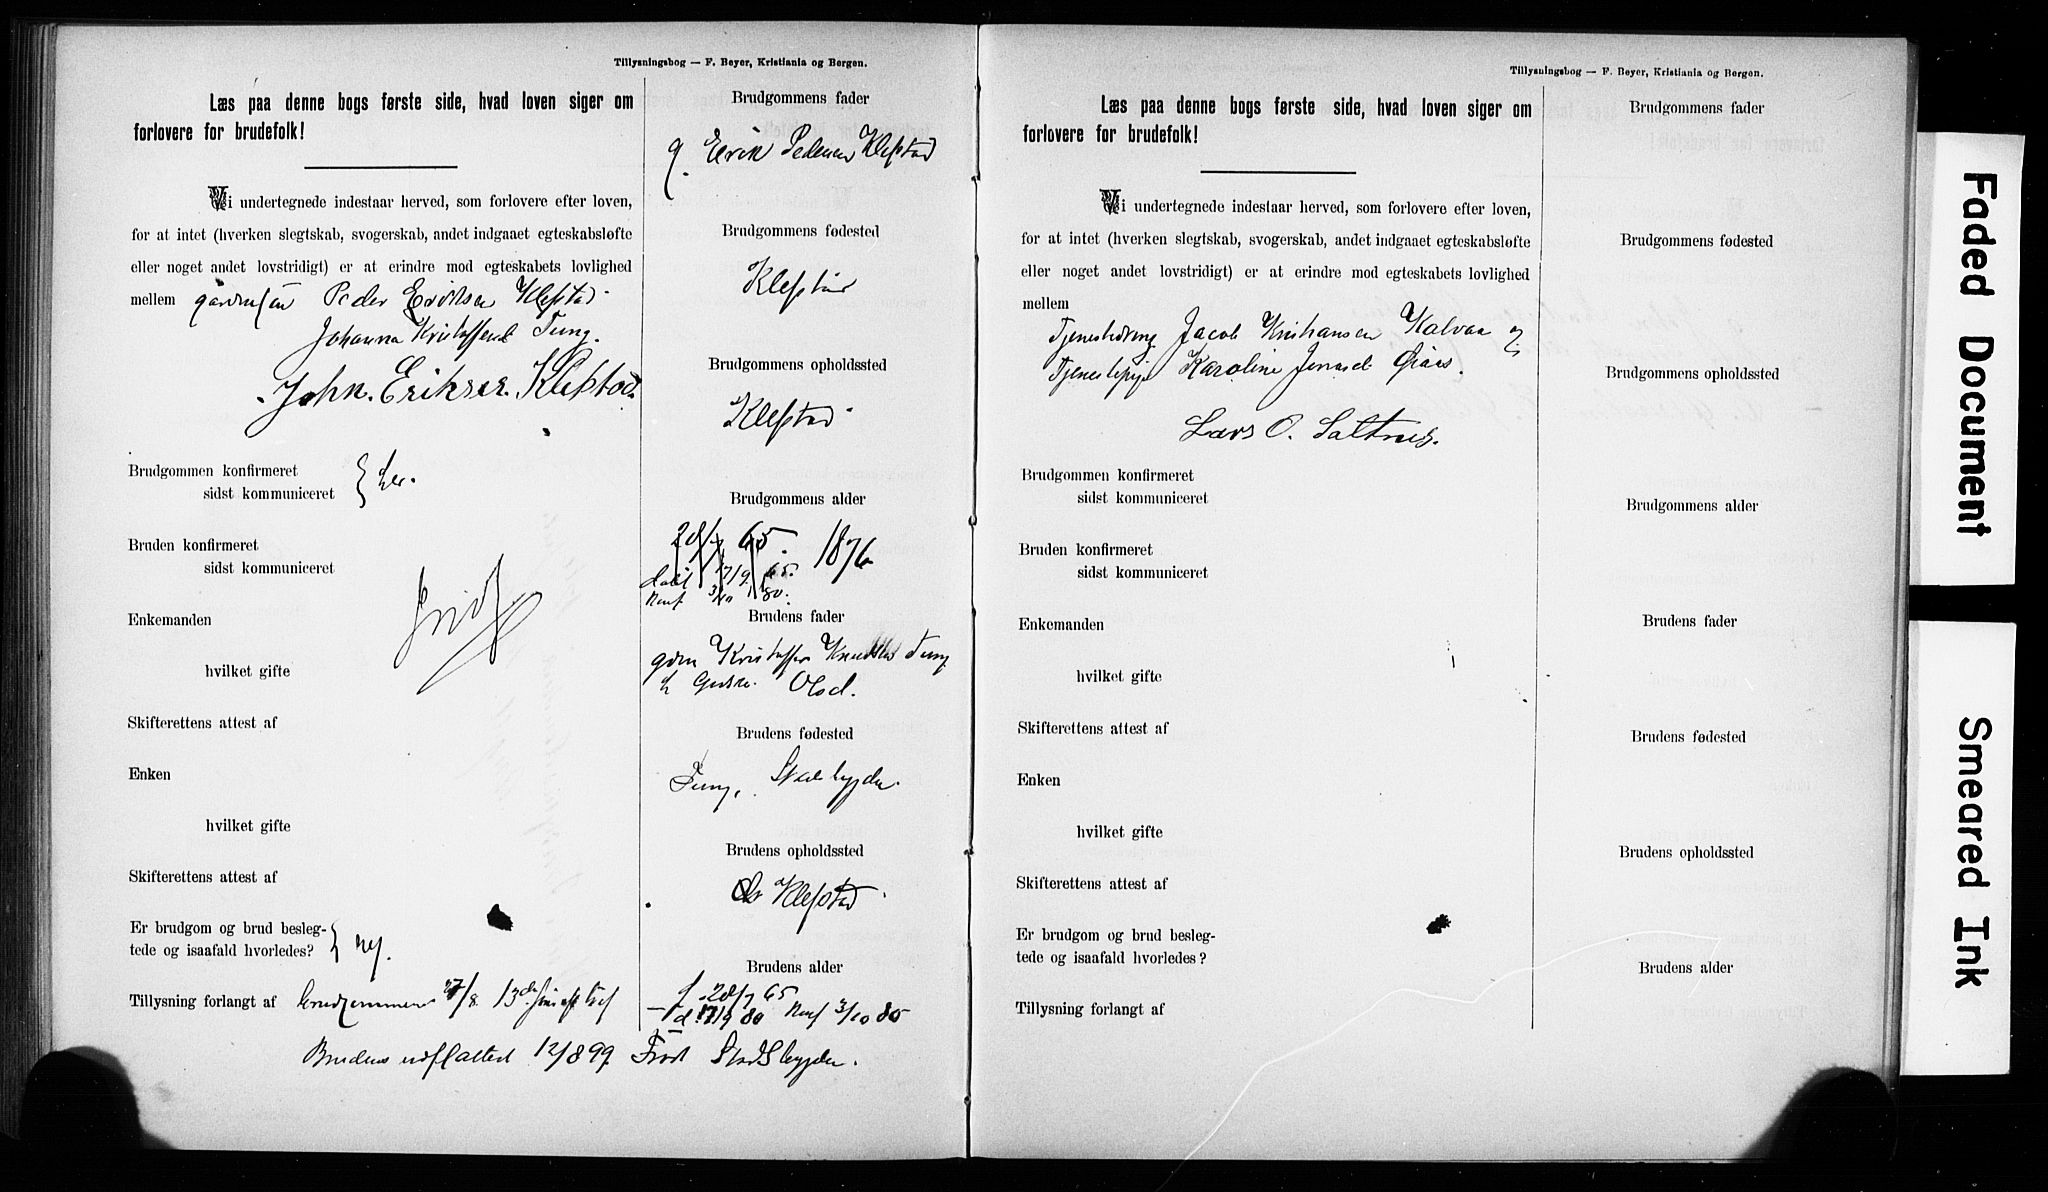 Tillysningsbog — F. Beyer, Kristiania og Bergen.
Læs paa denne bogs første side, hvad loven siger om
forlovere for brudefolk!
Vi undertegnede indestaar herved, som forlovere efter loven,
for at intet (hverken slegtskab, svogerskab, andet indgaaet egteskabsløfte
eller noget andet lovstridigt) er at erindre mod egteskabets lovlighed
mellem Peder Eriksen Klefstad
Johanna Tung.
John. Eriksen. Klefstad
Brudgommen konfirmeret
sidst kommuniceret } her.
Bruden konfirmeret
sidst kommuniceret
Enkemanden
hvilket gifte
Skifterettens attest af
Enken
hvilket gifte
Skifterettens attest af
Er brudgom og brud besleg-
tede og isaafald hvorledes? } nej.
Tillysning forlangt af
Brudens 12/8 99 Stadsbygden.
Brudgommens fader
g. Erik Pedersen Klefstad
Brudgommens fødested
Klefstad
Brudgommens opholdssted
Klefstad
Brudgommens alder
65. 1876
17/9 65.
3/10 80.
Brudens fader
gdm Kristoffer Knudsen Tung
Olsd.
Brudens fødested
Tung, Stadsbygden.
Brudens opholdssted
Klefstad
Brudens alder
f. 28/7 65
d. 17/9 80 Konf 3/10 80
Tillysningsbog — F. Beyer, Kristiania og Bergen.
Læs paa denne bogs første side, hvad loven siger om
forlovere for brudefolk!
Vi undertegnede indestaar herved, som forlovere efter loven,
for at intet (hverken slegtskab, svogerskab, andet indgaaet egteskabsløfte
eller noget andet lovstridigt) er at erindre mod egteskabets lovlighed
mellem
Tjenestedreng Jacob Kristiansen Kalvaa og
Tjenestepige Karoline
Lars O. Saltnes.
Brudgommen konfirmeret
sidst kommuniceret
Bruden konfirmeret
sidst kommuniceret
Enkemanden
hvilket gifte
Skifterettens attest af
Enken
hvilket gifte
Skifterettens attest af
Er brudgom og brud besleg-
tede og isaafald hvorledes?
Tillysning forlangt af
Brudgommens fader
Brudgommens fødested
Brudgommens opholdssted
Brudgommens alder
Brudens fader
Brudens fødested
Brudens opholdssted
Brudens alder
Faded Document
Smeared Ink